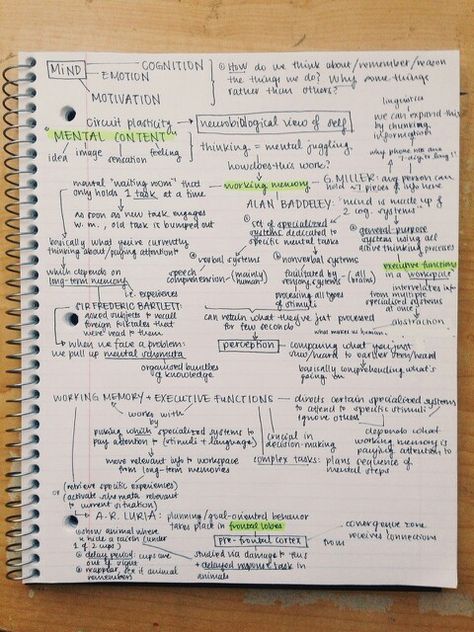 MIND
COGNITION
EMOTION
MOTIVATION
① HOW do we think about/remember/reason
the things we do? Why some things
rather than others?
circuit plasticity → neurobiological view of self
"MENTAL CONTENT"
idea image sensation feeling
thinking = mental juggling.
how does this work?
linguistics
we can expand this
by chunking
information
why phone #s are
7-digits long!!
mental "waiting room" that
only holds 1 task at a time
working memory
G. MILLER: avg person can
hold ~7 pieces of info here
as soon as new task engages
w.m., old task is bumped out
ALAN BADDELEY: "mind is made up of
2 cog. systems"
① set of specialized
systems dedicated to
specific mental tasks
② general-purpose
system using all
above thinking processes
basically what you're currently
thinking about/paying attention
which depends on
long-term memory
i.e. experiences
① verbal systems
speech
comprehension
(mainly
human)
② nonverbal systems
facilitated by
sensory systems
(all
brains)
processing all types
of stimuli
executive functions
in a workspace
interrelates info
from multiple
specialized systems
at once
abstraction
what makes us human
SIR FREDERIC BARTLETT:
asked subjects to recall
foreign folktales that
were read to them
→ when we face a problem:
we pull up mental schemata
organized bundles
of knowledge
can retain what they've just processed
for few seconds
perception → comparing what you just
saw/heard to earlier seen/heard
basically comprehending what's
going on
WORKING MEMORY + EXECUTIVE FUNCTIONS
directs certain specialized systems
to attend to specific stimuli
ignore others
works with
by
picking which specialized systems to
pay attention to (stimuli + language)
crucial in
decision-making
depends on what
working memory is
paying attention to
move relevant info to workspace
from long-term memories
complex tasks: plans sequence of
mental steps
or (retrieve specific experiences)
(activate schemata relevant
to current situation)
A.R. LURIA: planning/goal-oriented behavior
takes place in frontal lobes
① show animal where
u hide a raisin (under
1 of 2 cups)
② delay period: cups are
out of sight
③ reappear, see if animal
remembers
pre-frontal cortex
convergence zone
receives connections
from
studied via damage to this
+ delayed response task in
animals